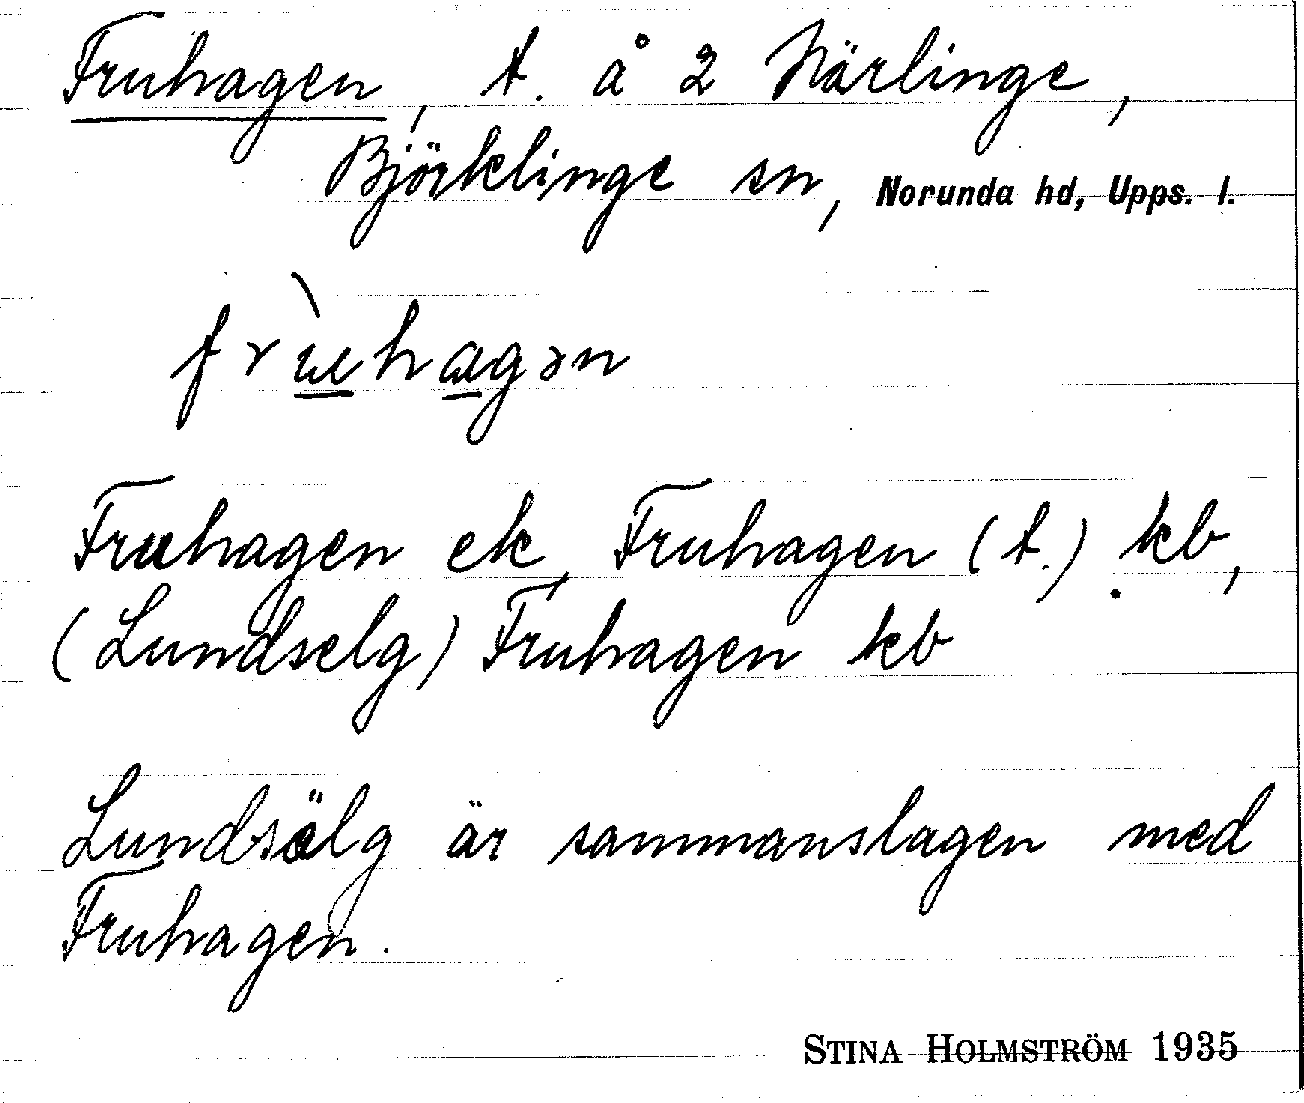 Fruhagen, t. å 2 Närlinge,
Björklinge sn, Norunda hd, Upps. l.
frùhagən
Fruhagen ek, Fruhagen (t.) kb,
(Lundselg) Fruhagen kb
Lundsälg är sammanslagen med
Fruhagen.
STINA HOLMSTRÖM 1935